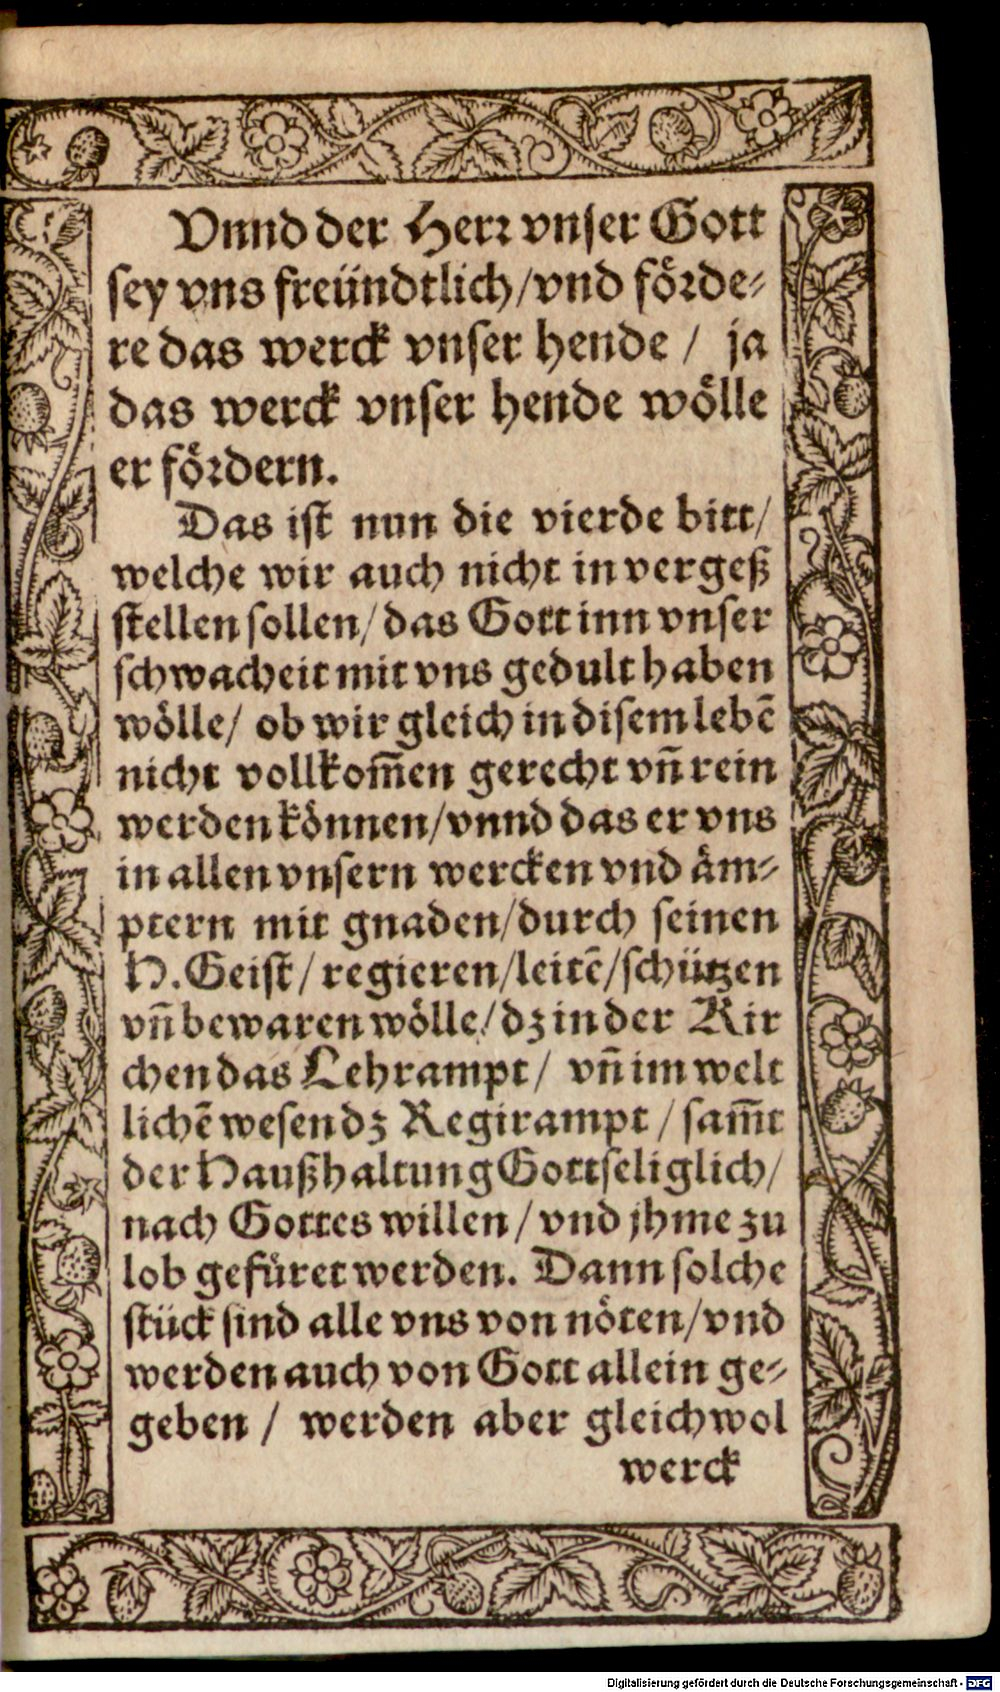 Vnnd der Herr vnser Gott
sey vns freündtlich/vnd förde-
re das werck vnser hende / ja
das werck vnser hende wölle
er fördern.
Das ist nun die vierde bitt/
welche wir auch nicht in vergeß
stellen sollen/das Gott inn vnser
schwacheit mit vns gedult haben
wölle/ ob wir gleich in disem lebẽ
nicht vollkom̃en gerecht vñ rein
werden können/vnnd das er vns
in allen vnsern wercken vnd äm-
ptern mit gnaden/durch seinen
H. Geist/regieren/leitẽ/schützen
vñ bewaren wölle/dz in der Kir
chen das Lehrampt/ vñ im welt
lichẽ wesen dz Regirampt/sam̃t
der Haußhaltung Gottseliglich/
nach Gottes willen/vnd jhme zu
lob gefüret werden. Dann solche
stück sind alle vns von nöten/vnd
werden auch von Gott allein ge-
geben / werden aber gleichwol
werck
Digitalisierung gefördert durch die Deutsche Forschungsgemeinschaft - DFG